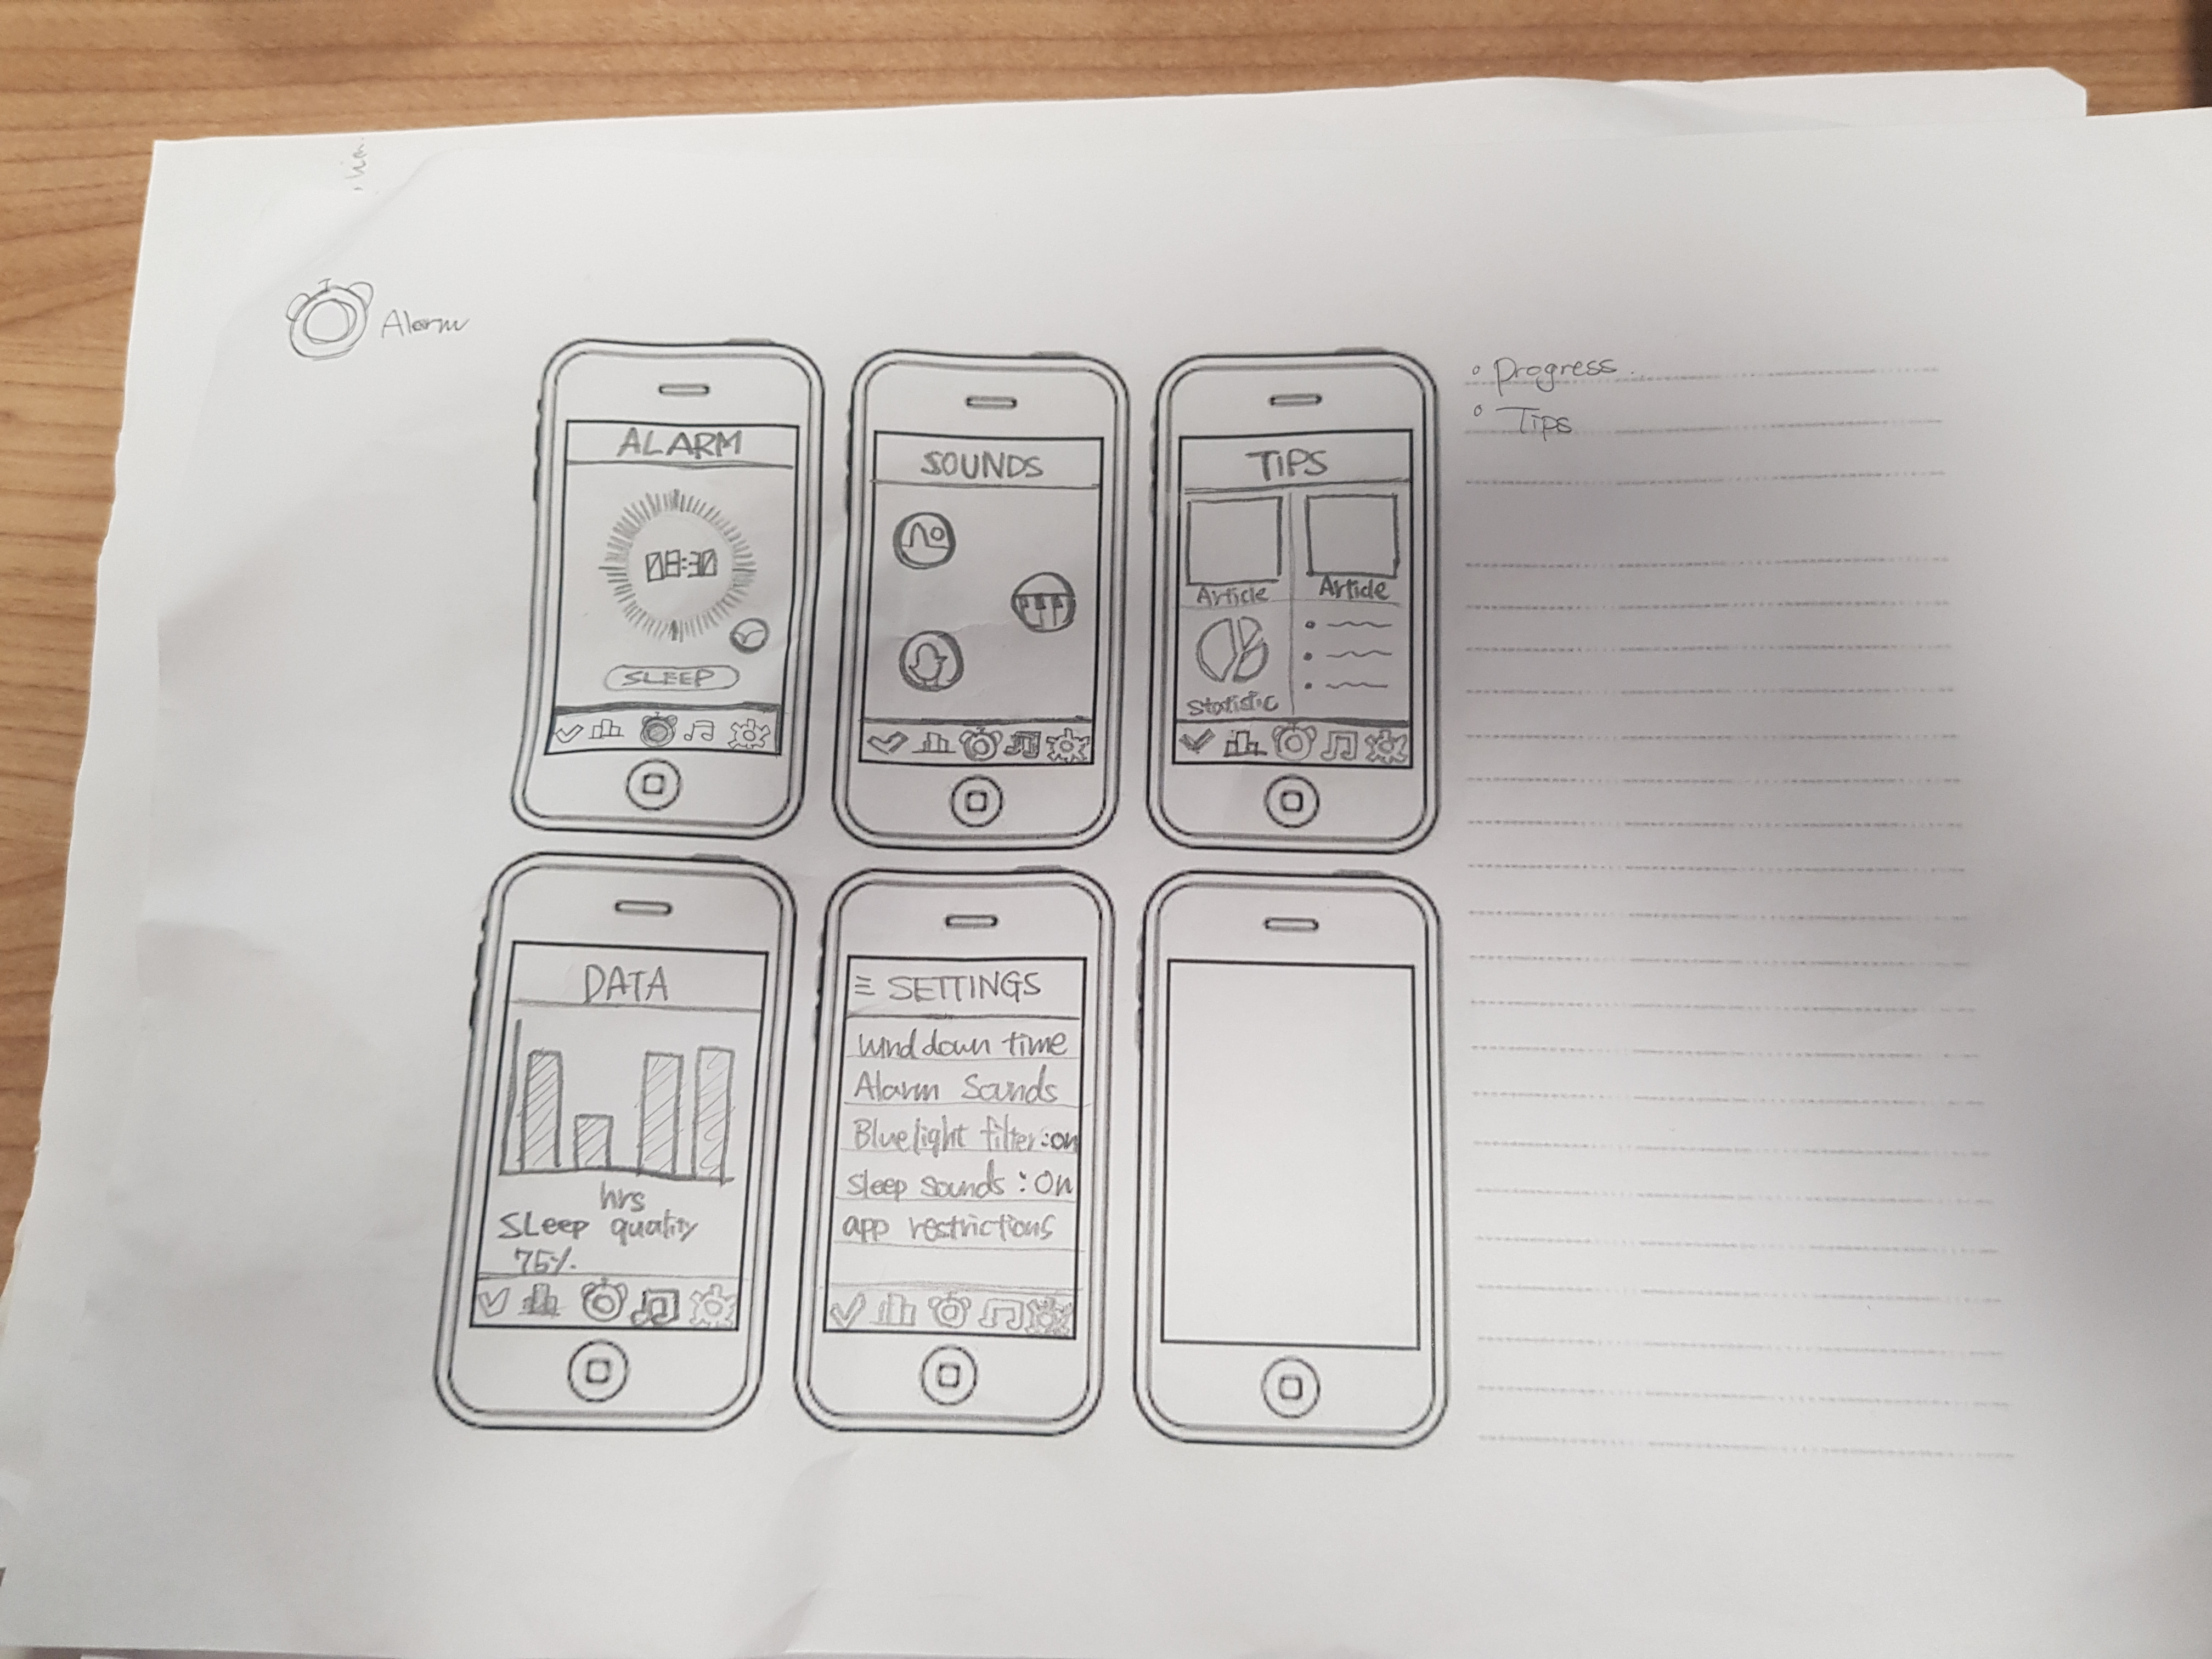 Alarm
ALARM
08:30
SLEEP
SOUNDS
TIPS
Article
Article
Statistic
• Progress.
• Tips
DATA
hrs
SLeep quality
75%
≡ SETTINGS
wind down time
Alarm Sounds
Bluelight filter:on
sleep sounds : On
app restrictions